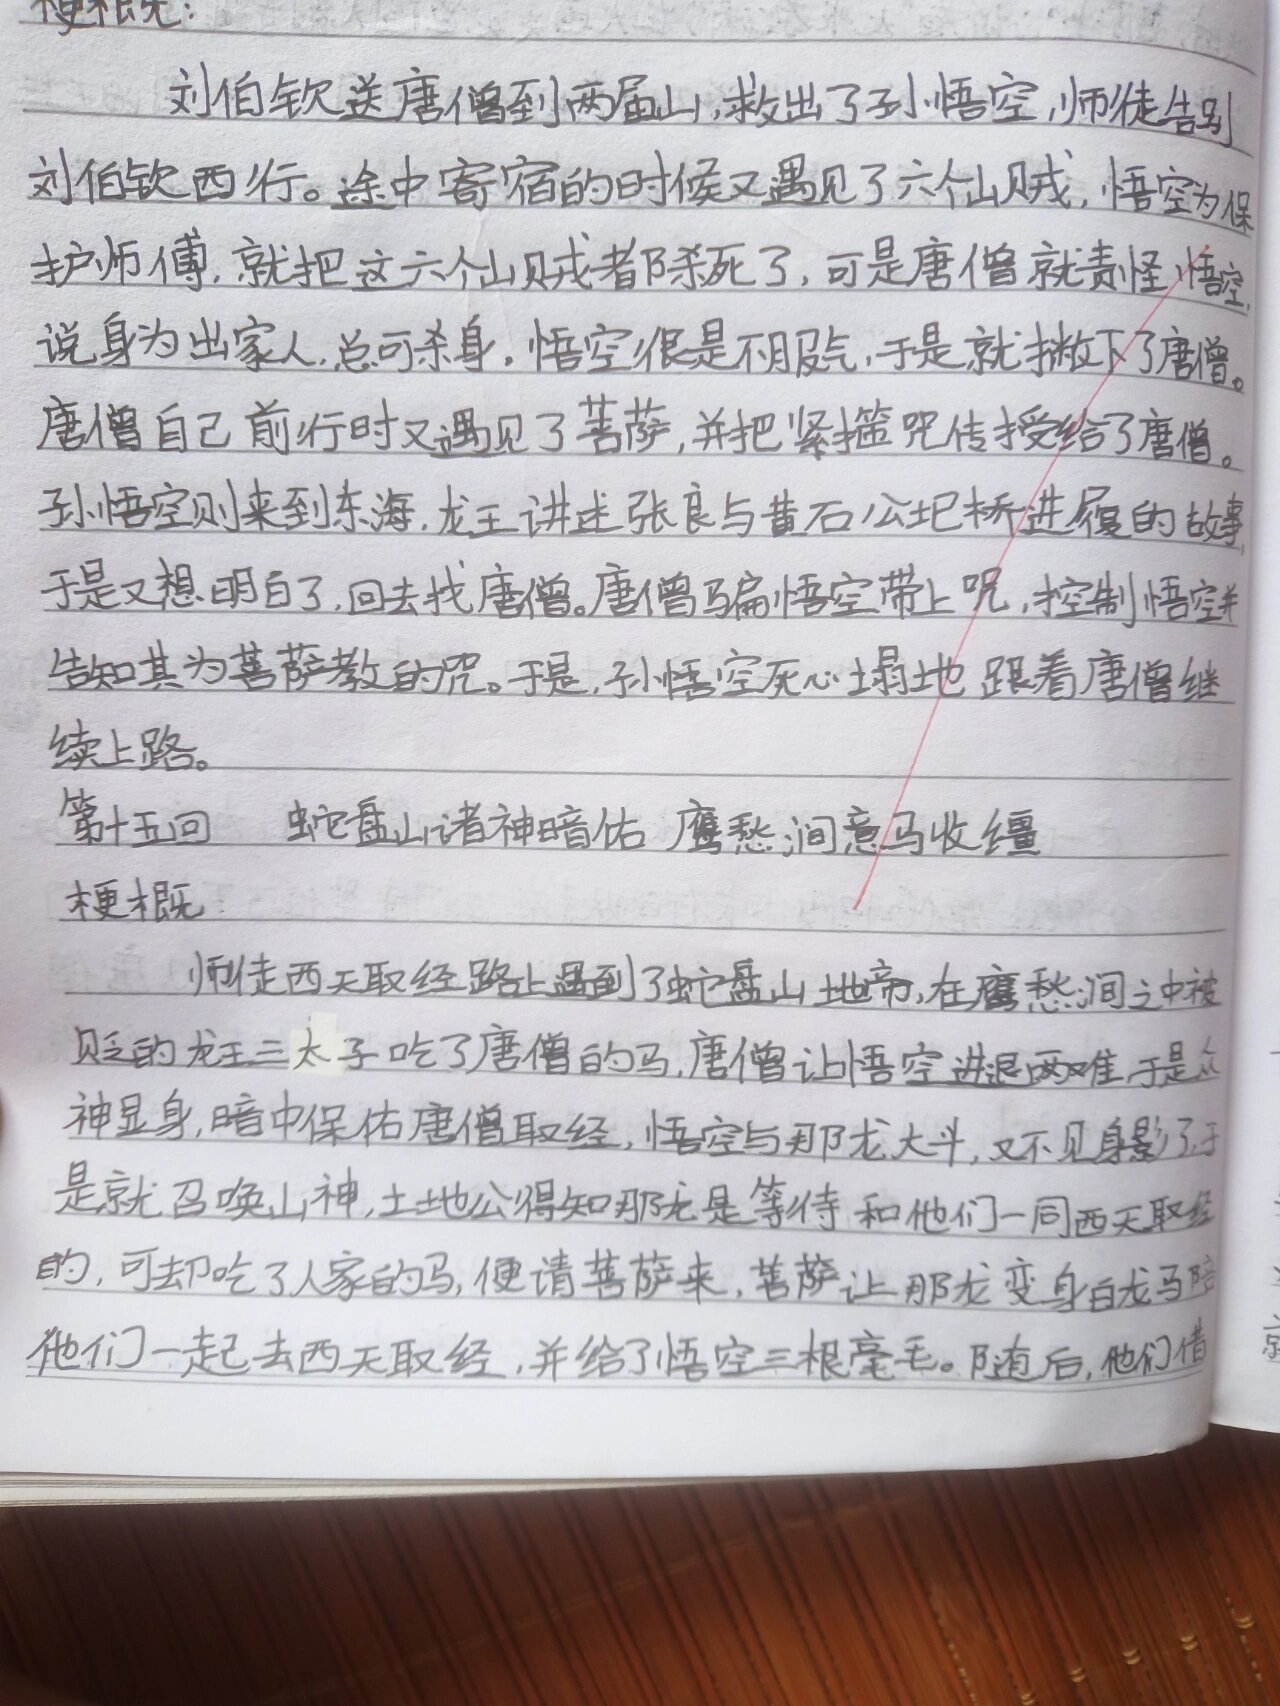 梗概:
刘伯钦送唐僧到两届山,救出了孙悟空,师徒告别
刘伯钦西行。途中寄宿的时候又遇见了六个山贼,悟空为保
护师傅,就把这六个山贼都杀死了,可是唐僧就责怪悟空,
说身为出家人,总可杀身,悟空很是不服气,于是就撇下了唐僧。
唐僧自己前行时又遇见了菩萨,并把紧箍咒传授给了唐僧。
孙悟空则来到东海,龙王讲述张良与黄石公圯桥进履的故事,
于是又想明白了,回去找唐僧。唐僧骗悟空带上咒,控制悟空并
告知其为菩萨教的咒。于是,孙悟空死心塌地跟着唐僧继
续上路。
第十五回 蛇盘山诸神暗佑 鹰愁涧意马收缰
梗概:
师徒西天取经路上遇到了蛇盘山地帝,在鹰愁涧之中被
贬的龙王三太子吃了唐僧的马,唐僧让悟空进退两难,于是众
神显身,暗中保佑唐僧取经,悟空与那龙大斗,又不见身影了,于
是就召唤山神,土地公得知那龙是等待和他们一同西天取经
的,可却吃了人家的马,便请菩萨来,菩萨让那龙变身白龙马陪
他们一起去西天取经,并给了悟空三根毫毛。随后,他们借